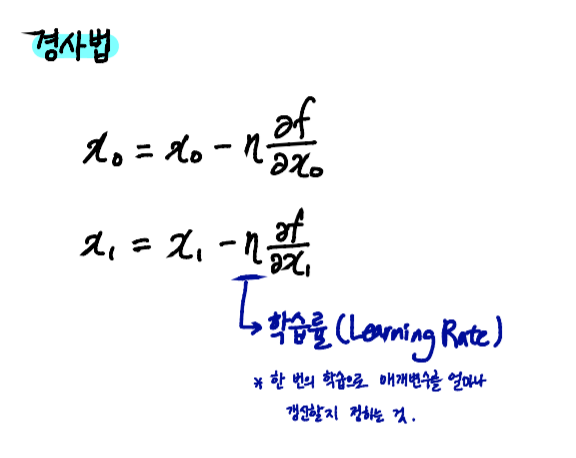 경사법
x₀ = x₀ - η ∂f/∂x₀
x₁ = x₁ - η ∂f/∂x₁
학습률 (Learning Rate)
* 한 번의 학습으로 매개변수를 얼마나
갱신할지 정하는 것.